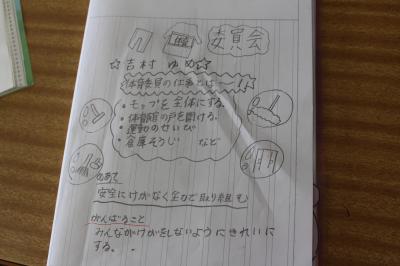 委員会
☆吉村 ゆめ☆
体育委員の仕事とは━!!
・モップを全体にする。
・体育館の戸を開ける。
・運動のせいび
・倉庫そうじ など
めあて
安全にけがなく全力で取り組む
がんばること
みんながけがをしないようにきれいに
する。